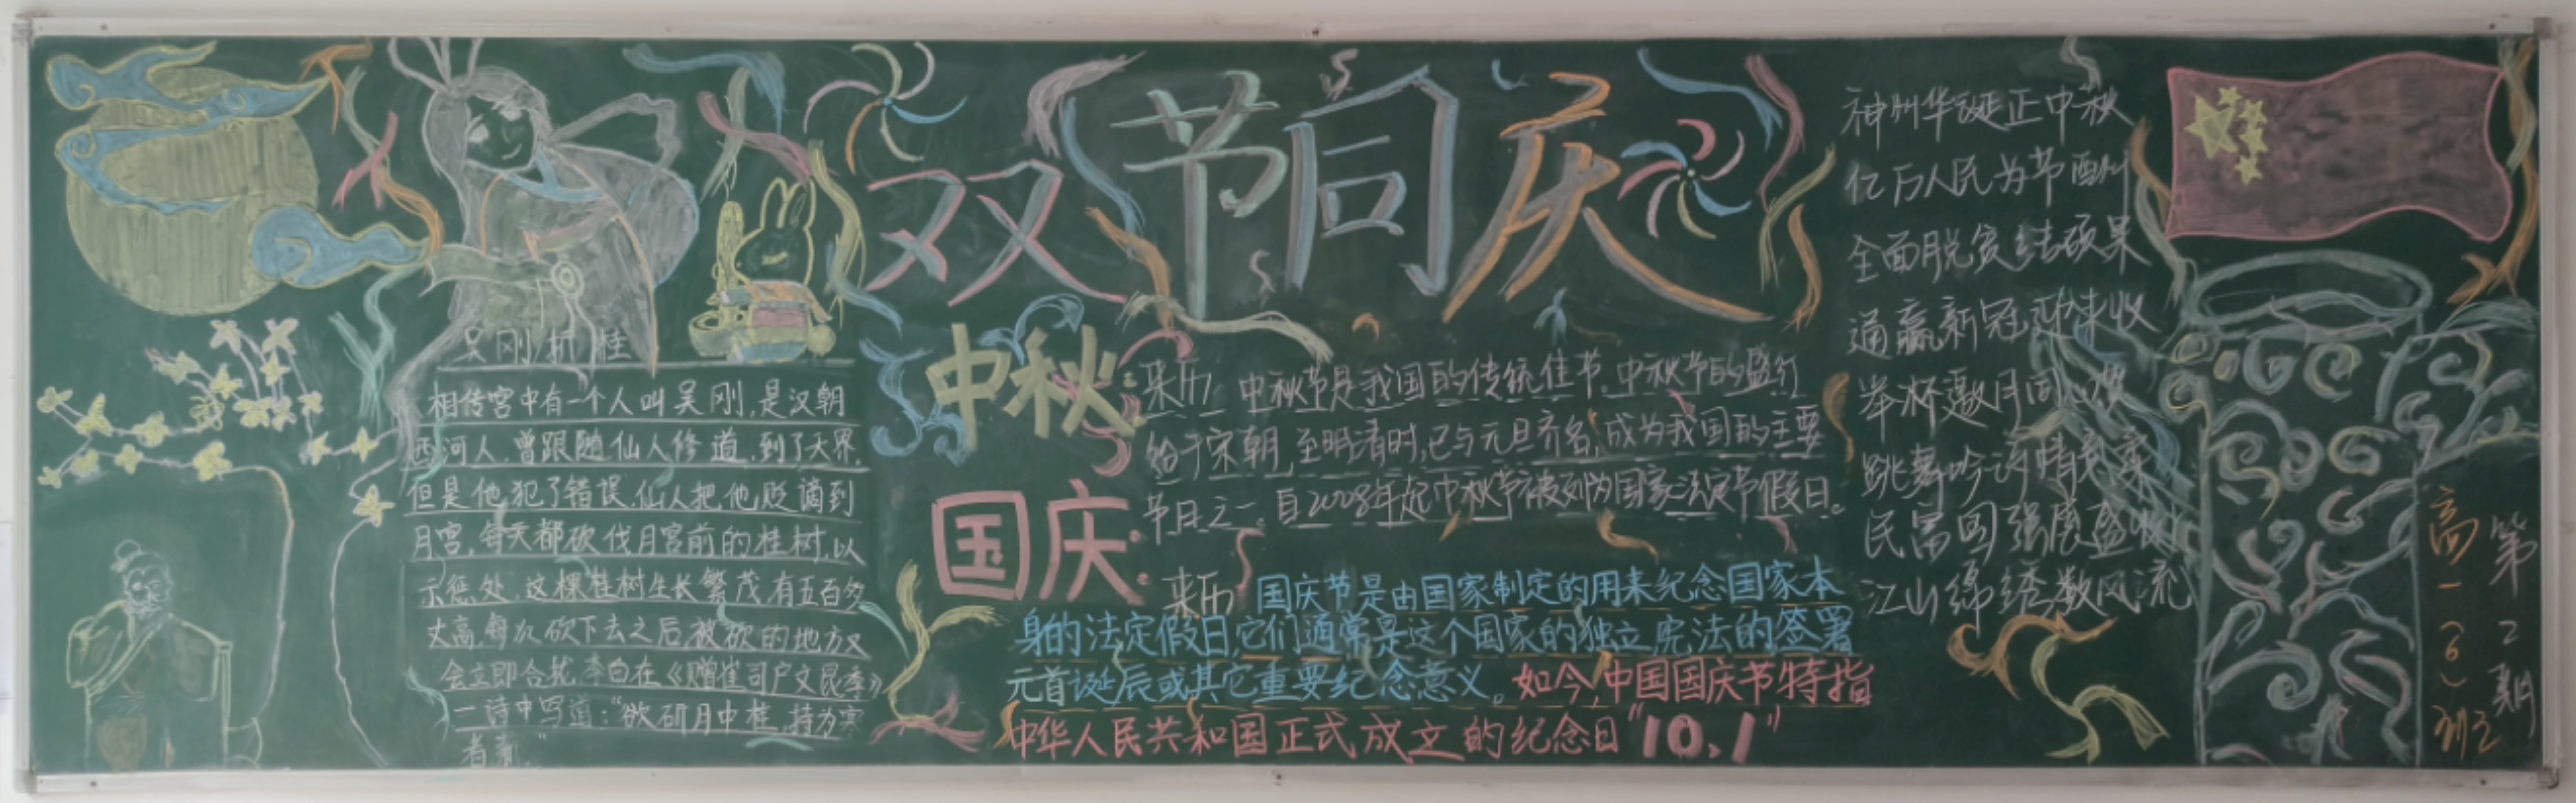 双节同庆
吴刚折桂
相传宫中有一个人叫吴刚,是汉朝
西河人,曾跟随仙人修道,到了天界,
但是他犯了错误,仙人把他贬谪到
月宫,每天都砍伐月宫前的桂树,以
示惩处。这棵桂树生长繁茂,有五百多
丈高,每次砍下去之后,被砍的地方又
会立即合拢,李白在《赠崔司户文昆季》
一诗中写道:“欲斫月中桂,持为寒
者薪。”
中秋:
来历 中秋节是我国的传统佳节。中秋节的盛行
始于宋朝,至明清时,已与元旦齐名,成为我国的主要
节日之一。自2008年起中秋节被列为国家法定节假日。
国庆:
来历 国庆节是由国家制定的用来纪念国家本
身的法定假日,它们通常是这个国家的独立、宪法的签署
元首诞辰或其它重要纪念意义。如今,中国国庆节特指
中华人民共和国正式成立的纪念日“10.1”
神州华诞正中秋
亿万人民为节酬
全面脱贫结硕果
通赢新冠
举杯邀月同
跳舞吟诗情
民富国强展
江山绵绣数风流
第2期
高一(6)班